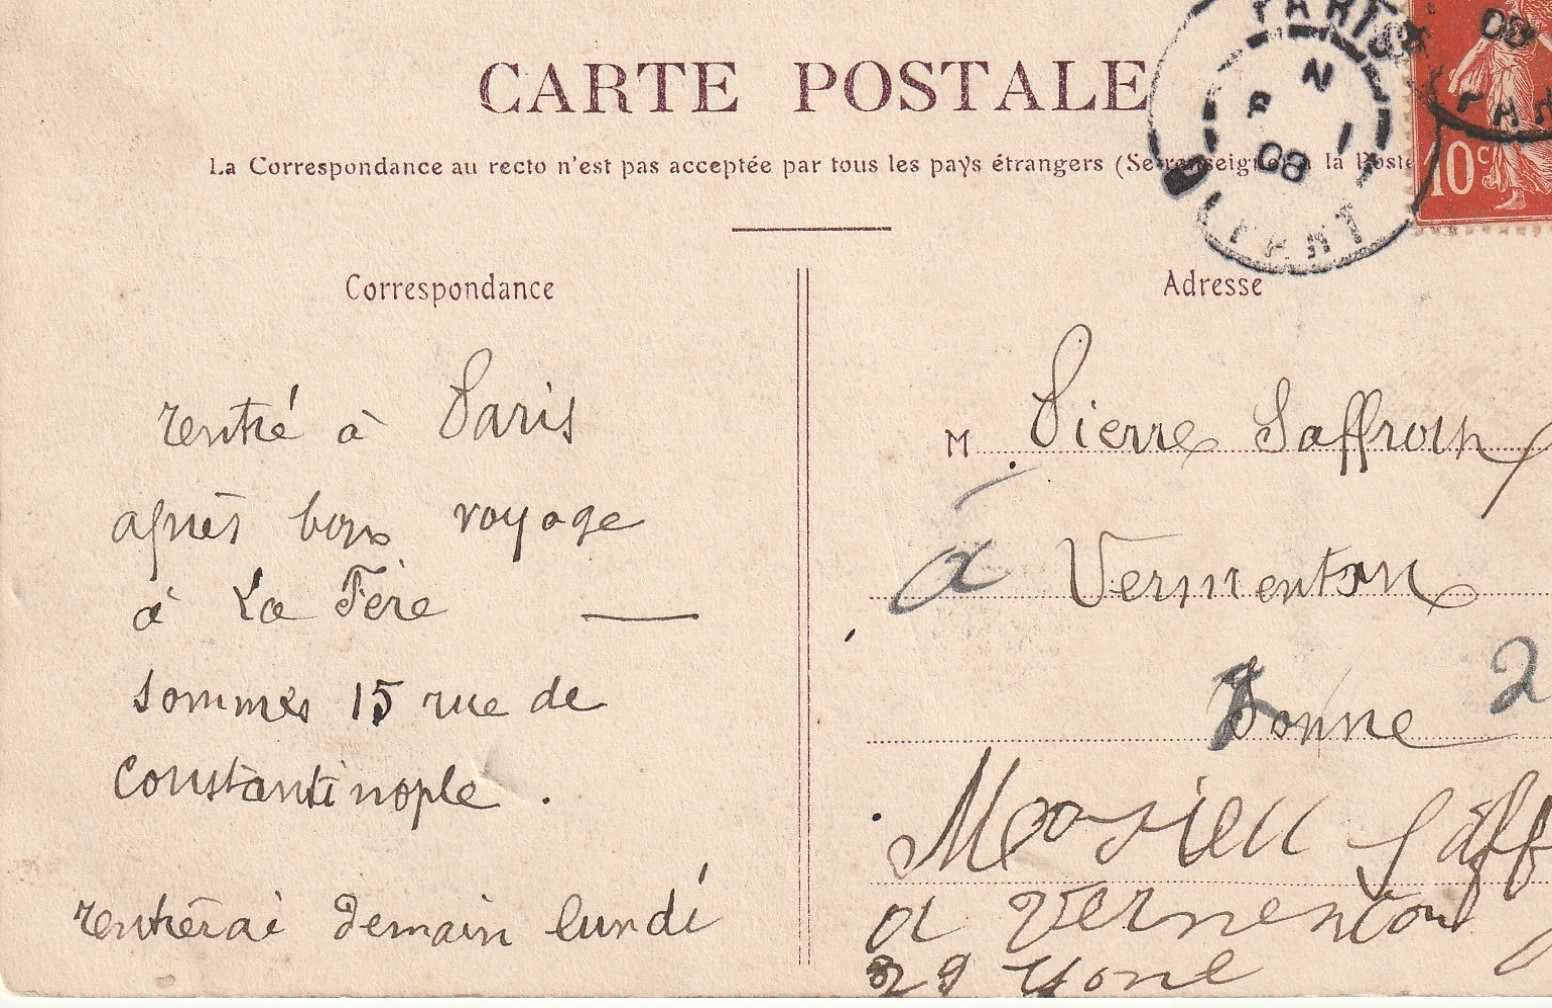 CARTE POSTALE
La Correspondance au recto n'est pas acceptée par tous les pays étrangers (Se renseigner à la Poste
PARIS
N
8
1
08
DÉPART
08
PAR
10 c
Correspondance
rentré à Paris
après bon voyage
à La Fère —
sommes 15 rue de
Constantinople .
rentrerai demain lundi
Adresse
M. Pierre Saffroin
à Vermenton
Yonne 2
Mosieu Saff
a Vernenton
Yone